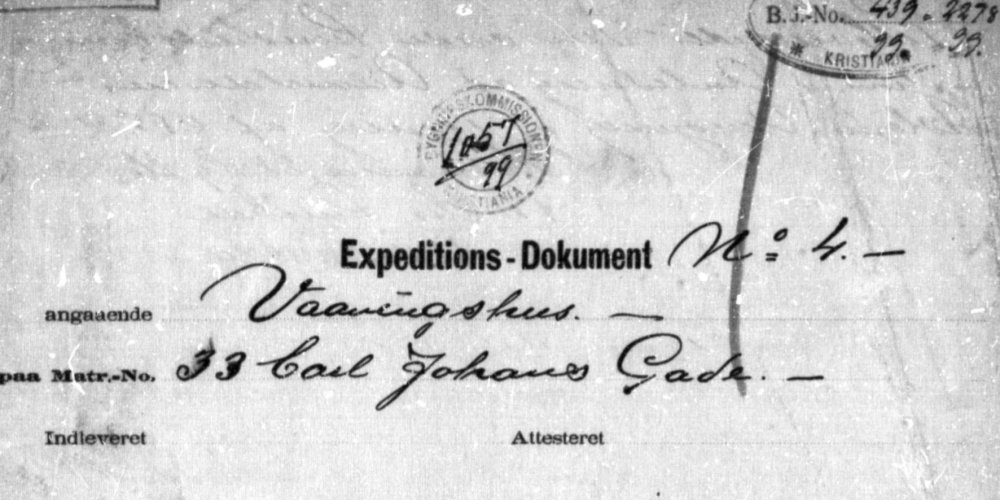 B. J.-No. 439. 2278
99. 99.
* KRISTIANIA
BYGNINGSKOMMISSIONEN * KRISTIANIA
1057
99
Expeditions-Dokument No 4. —
angaaende Vaaningshus. —
paa Matr.-No. 33 Carl Johans Gade. —
Indleveret Attesteret